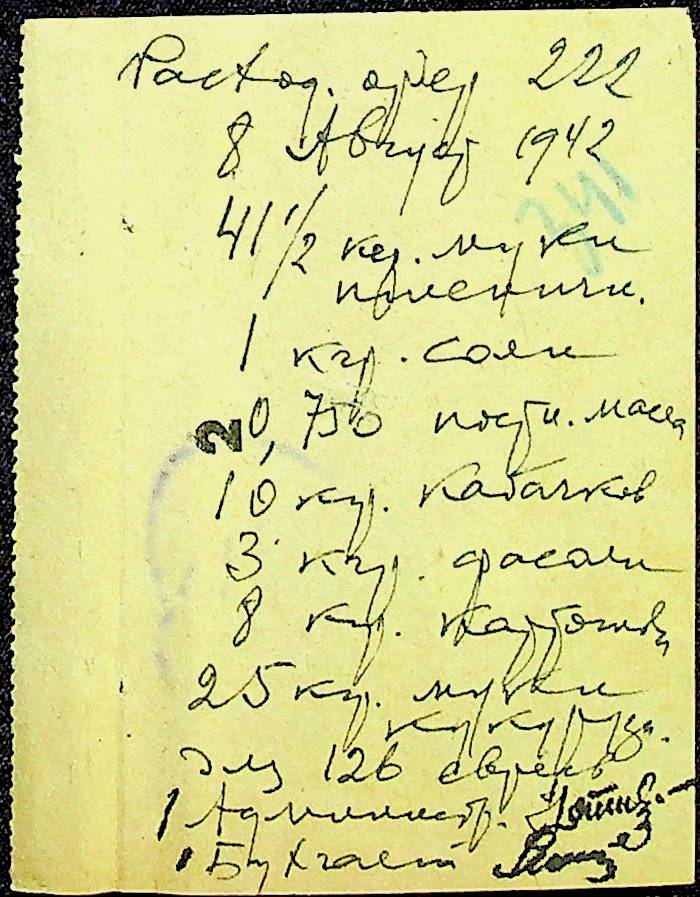 Расход. ордер 222
8 Август 1942
341
41 1/2 кгр. муки
пшеничн.
1 кгр. соли
0,750 постн. масла
2
10 кгр. кабачков
3 кгр. фасоли
8 кгр. картошки
25 кгр. муки
кукурузн.
для 126 евреев
Администр.
Бухгалт